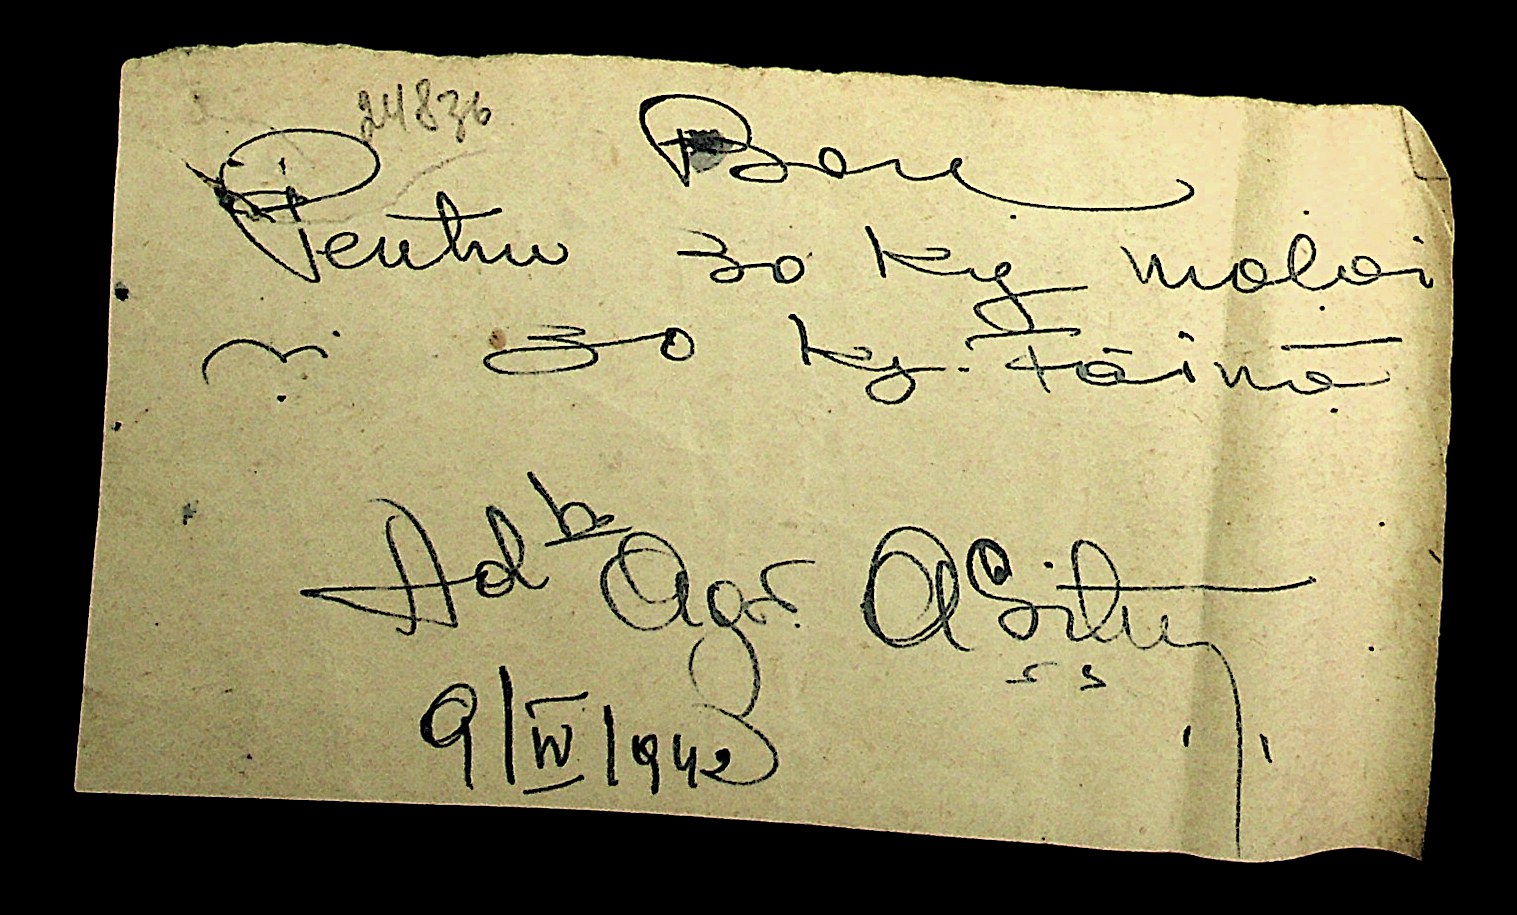 24836
Bon
Pentru 30 kg mălai
și 30 kg. Făină
Adtor Agr.
9/IV/1942